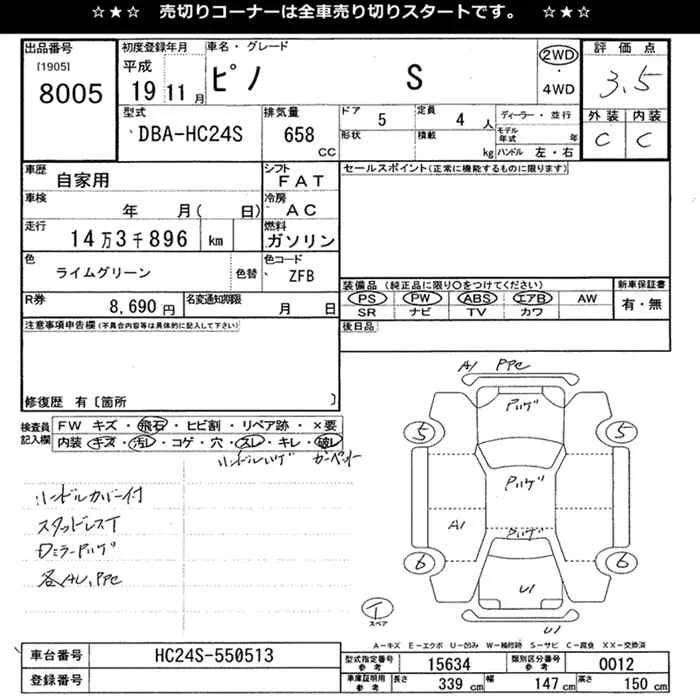 ☆★☆ 売切りコーナーは全車売り切りスタートです。 ☆★☆
出品番号
[1905]
8005
初度登録年月
平成
19 11 月
車名・グレード
ピノ S
2WD
4WD
評価点
3.5
外装 内装
C C
型式
DBA-HC24S
排気量
658
CC
ドア 5
形状
定員 4 人
積載 kg
ディーラー・並行
モデル年式 年
ハンドル 左・右
車歴
自家用
シフト
FAT
セールスポイント(正常に機能するものに限ります)
車検
年 月( 日)
冷房
AC
走行
14万3千896 km
燃料
ガソリン
色
ライムグリーン
色替
色コード
ZFB
装備品(純正品に限り○をつけてください)
PS PW ABS エアB AW
SR ナビ TV カワ
新車保証書
有・無
R券
8,690 円
名変通知期限
月 日
後日品
注意事項申告欄(不具合内容等は具体的に記入して下さい)
修復歴 有〔箇所 〕
検査員記入欄
FW キズ・飛石・ヒビ割・リペア跡・×要
内装・キズ・汚レ・コゲ・穴・スレ・キレ・破レ
ハンドルハゲ カーペット
ハンドルカバー付
スタッドレスT
Dミラーハゲ
各AU,PPC
A1 PPC
ハゲ
5 5
ハゲ
A1
ハゲ
6 6
U1
T
スペア
U1
A-キズ E-エクボ U-凹み W-補修跡 S-サビ C-腐食 XX-交換済
車台番号
HC24S-550513
登録番号
型式指定番号参考
15634
類別区分番号参考
0012
車庫証明用参考
長さ 339 cm
幅 147 cm
高さ 150 cm